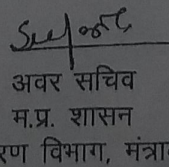 अवर सचिव
म.प्र. शासन
रण विभाग, मंत्रा